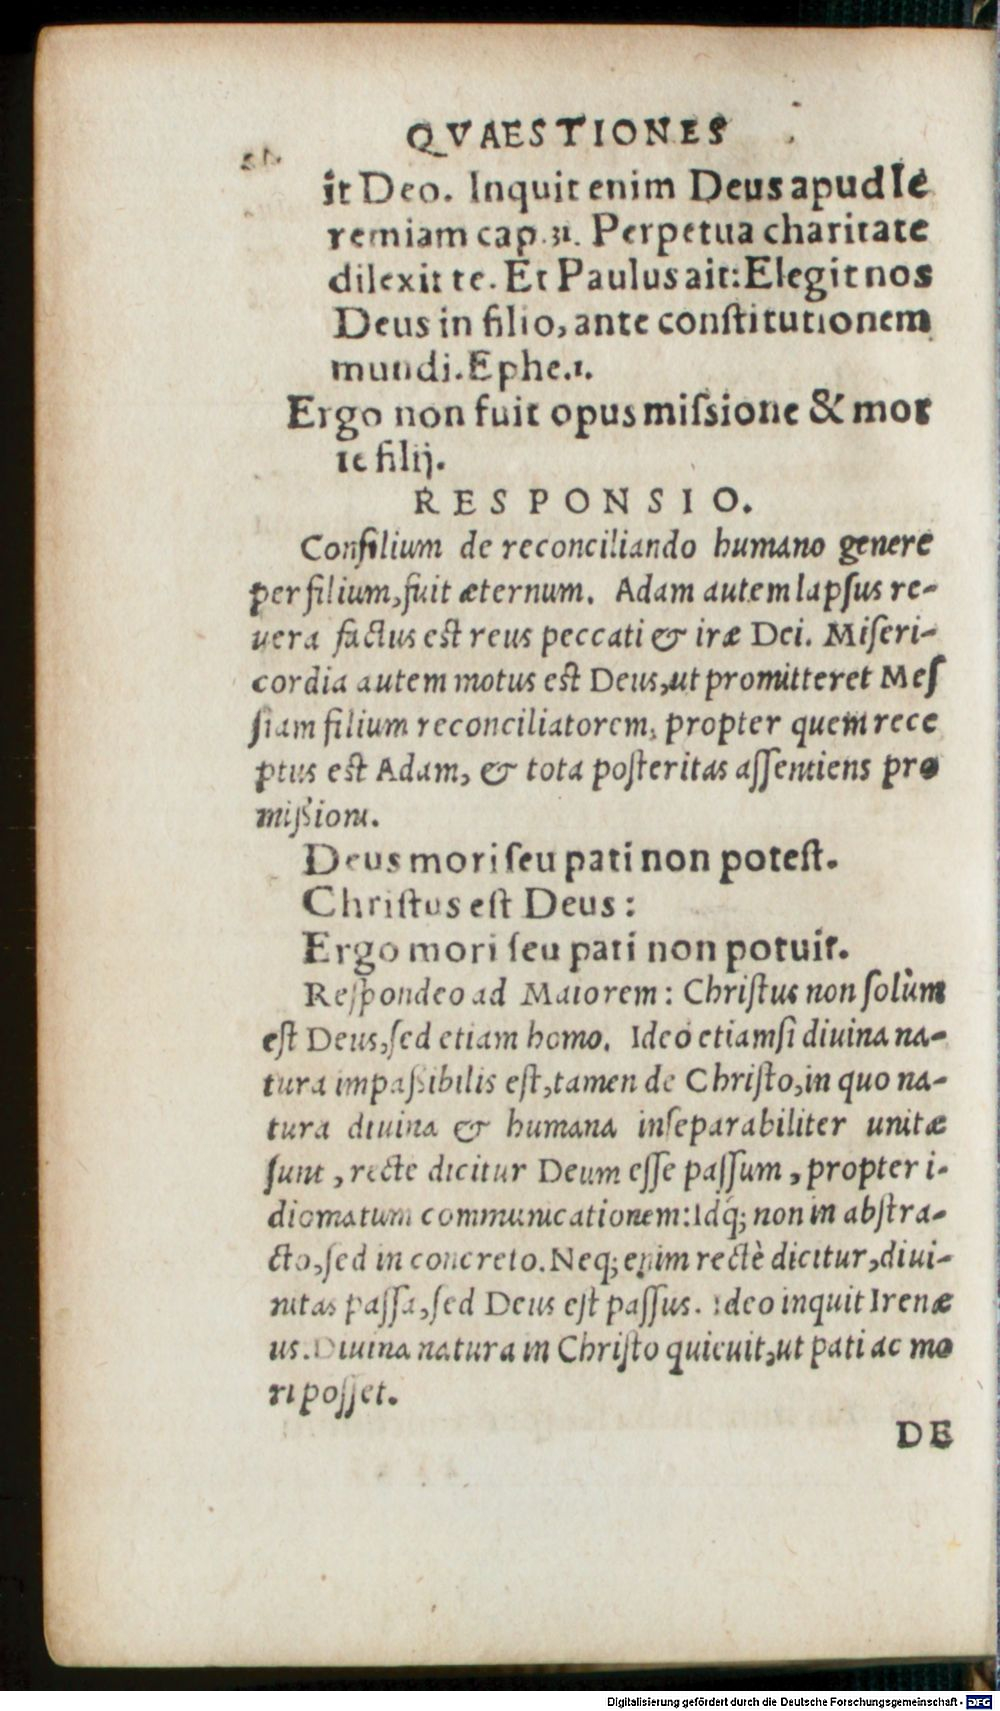 QVAESTIONES
it Deo. Inquit enim Deus apud Ie
remiam cap. 31. Perpetua charitate
dilexit te. Et Paulus ait: Elegit nos
Deus in filio, ante conſtitutionem
mundi. Ephe. 1.
Ergo non fuit opus miſsione & mor
te filij.
RESPONSIO.
Conſilium de reconciliando humano genere
per filium, fuit æternum. Adam autem lapſus re-
vera factus est reus peccati & iræ Dei. Miſeri-
cordia autem motus est Deus, ut promitteret Meſ
ſiam filium reconciliatorem, propter quem rece
ptus est Adam, & tota poſteritas aſſentiens pro
mißioni.
Deus mori ſeu pati non poteſt.
Chriſtus eſt Deus:
Ergo mori ſeu pati non potuit.
Reſpondeo ad Maiorem: Chriſtus non ſolùm
eſt Deus, ſed etiam homo. Ideo etiamſi divina na-
tura impaßibilis eſt, tamen de Chriſto, in quo na-
tura divina & humana inſeparabiliter unitæ
ſunt, recte dicitur Deum eſſe paſſum, propter i-
diomatum communicationem: Idq́; non in abſtra-
cto, ſed in concreto. Neq; enim rectè dicitur, divi-
nitas paſſa, ſed Deus eſt paſſus. Ideo inquit Irenæ
us. Divina natura in Chriſto quievit, ut pati ac mo
ri poſſet.
DE
Digitalisierung gefördert durch die Deutsche Forschungsgemeinschaft - DFG